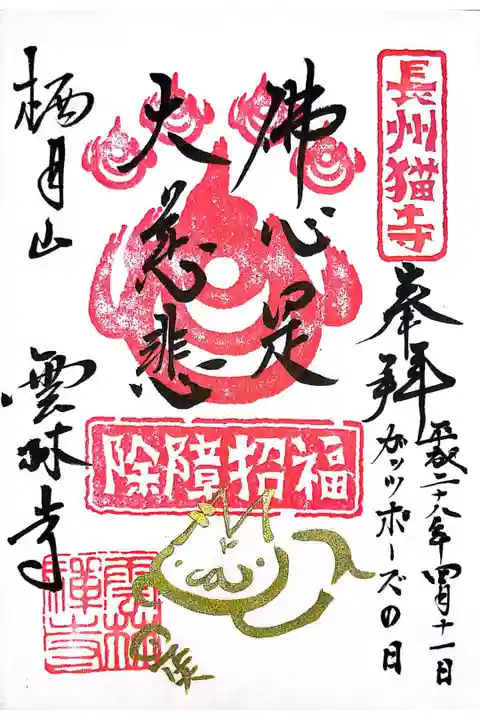 長州猫寺
奉拝
平成二十八年四月十一日
ガッツポーズの日
佛心是
大慈悲
福招障除
栖月山
雲林寺
雲林
禅寺